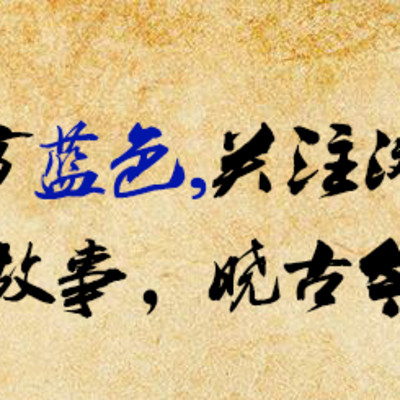 方蓝色,关注
故事，晓古今